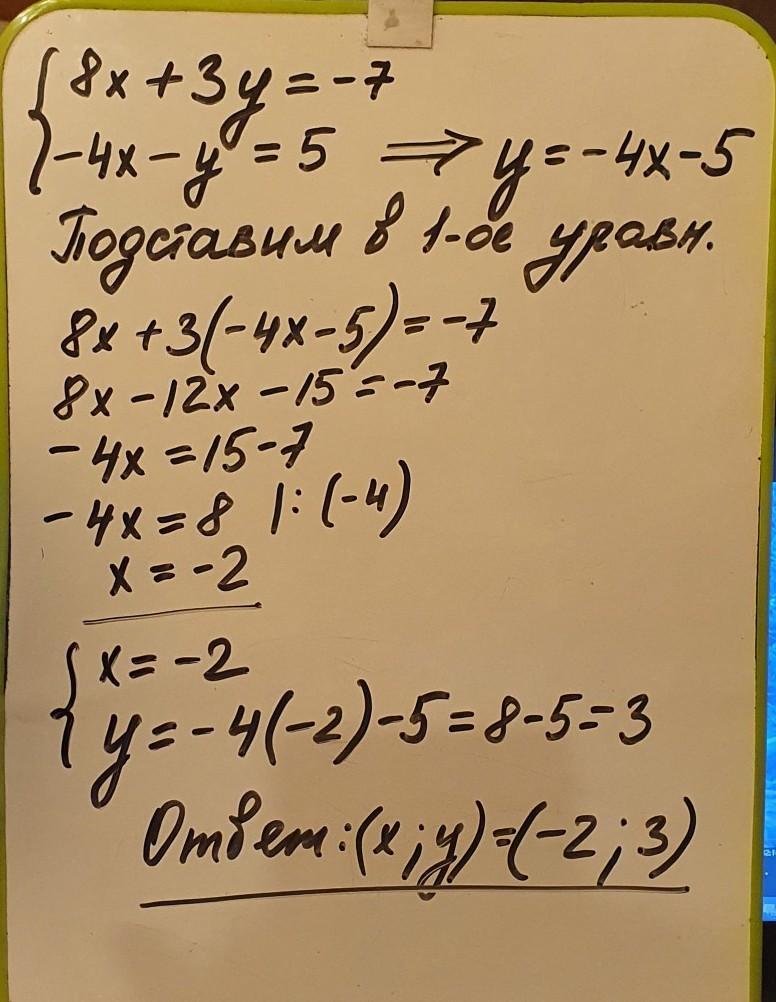 { 8x + 3y = -7
-4x - y = 5 ⟹ y = -4x - 5
Подставим в 1-ое уравн.
8x + 3(-4x - 5) = -7
8x - 12x - 15 = -7
-4x = 15 - 7
-4x = 8 |: (-4)
x = -2
{ x = -2
y = -4(-2) - 5 = 8 - 5 = 3
Ответ: (x; y) = (-2; 3)